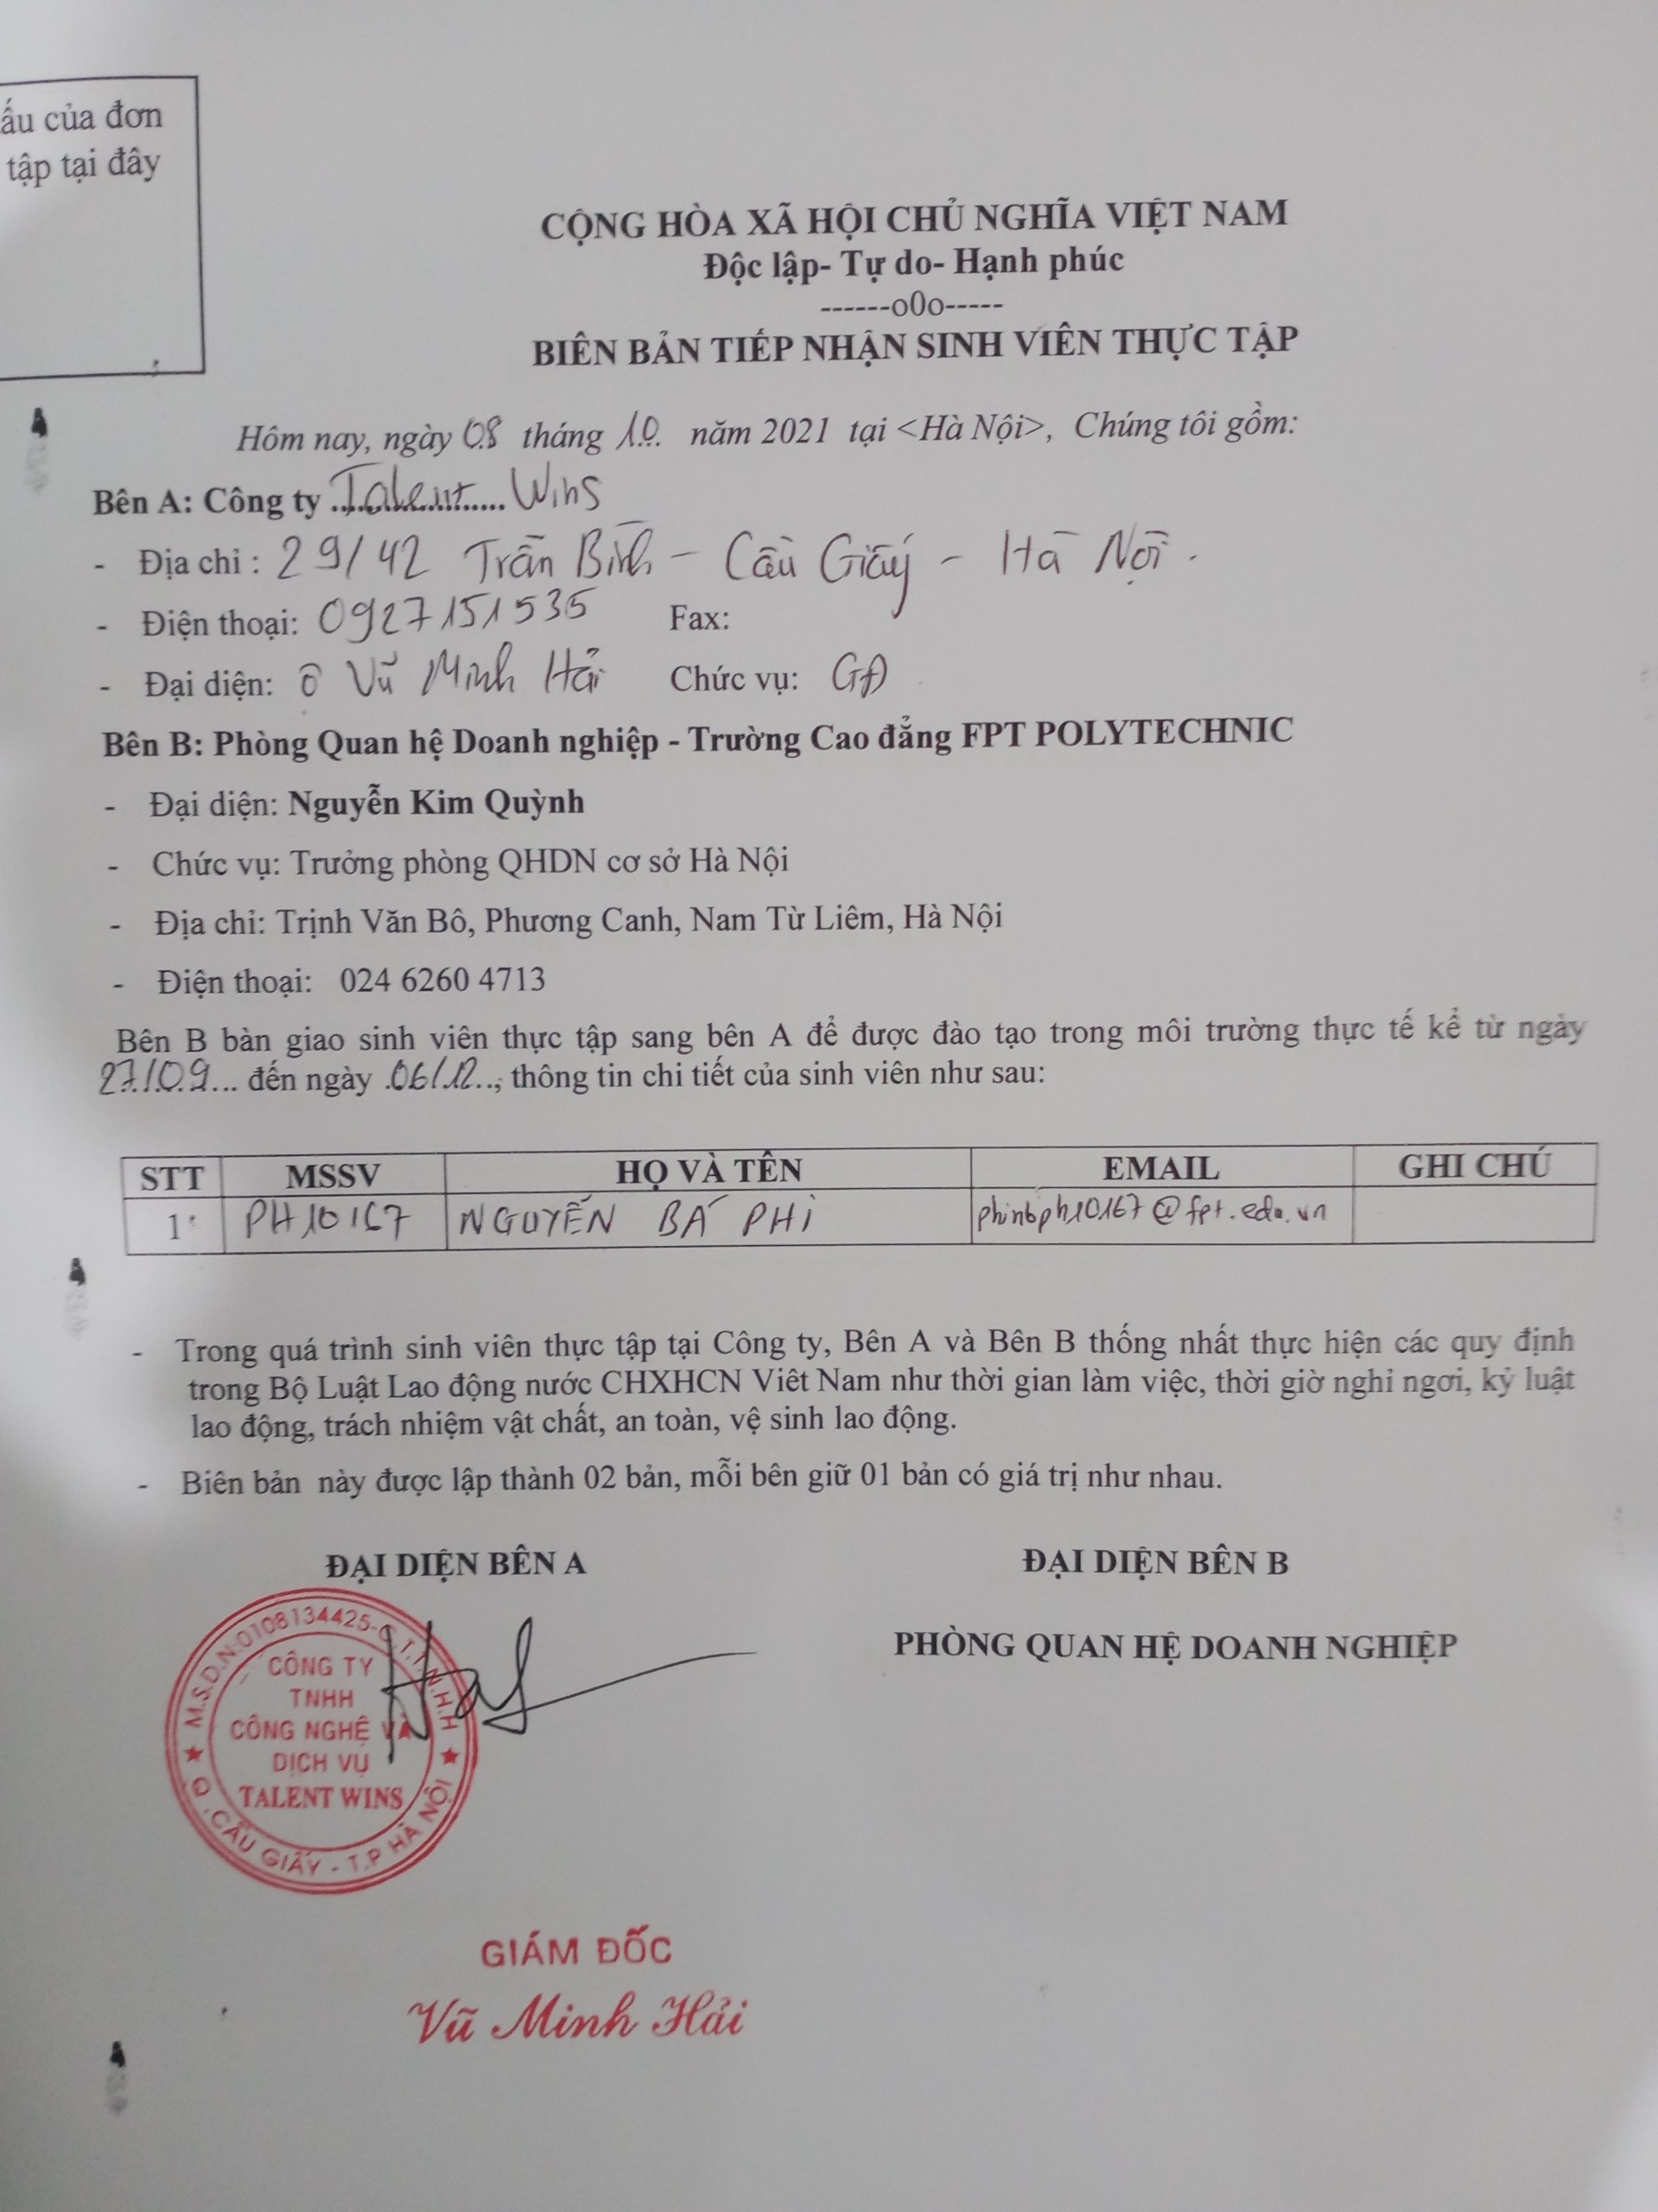 ấu của đơn
tập tại đây
CỘNG HÒA XÃ HỘI CHỦ NGHĨA VIỆT NAM
Độc lập- Tự do- Hạnh phúc
------o0o-----
BIÊN BẢN TIẾP NHẬN SINH VIÊN THỰC TẬP
Hôm nay, ngày 08 tháng 10 năm 2021 tại <Hà Nội>, Chúng tôi gồm:
Bên A: Công ty Talent Wins
- Địa chỉ : 29/42 Trần Bình - Cầu Giấy - Hà Nội.
- Điện thoại: 0927151535 Fax:
- Đại diện: ô Vũ Minh Hải Chức vụ: GĐ
Bên B: Phòng Quan hệ Doanh nghiệp - Trường Cao đẳng FPT POLYTECHNIC
- Đại diện: Nguyễn Kim Quỳnh
- Chức vụ: Trưởng phòng QHDN cơ sở Hà Nội
- Địa chỉ: Trịnh Văn Bô, Phương Canh, Nam Từ Liêm, Hà Nội
- Điện thoại: 024 6260 4713
Bên B bàn giao sinh viên thực tập sang bên A để được đào tạo trong môi trường thực tế kể từ ngày
27/09... đến ngày .06/12.., thông tin chi tiết của sinh viên như sau:
STT MSSV HỌ VÀ TÊN EMAIL GHI CHÚ
1 PH10167 NGUYỄN BÁ PHI phinbph10167@fpt.edu.vn
- Trong quá trình sinh viên thực tập tại Công ty, Bên A và Bên B thống nhất thực hiện các quy định
trong Bộ Luật Lao động nước CHXHCN Viêt Nam như thời gian làm việc, thời giờ nghỉ ngơi, kỷ luật
lao động, trách nhiệm vật chất, an toàn, vệ sinh lao động.
- Biên bản này được lập thành 02 bản, mỗi bên giữ 01 bản có giá trị như nhau.
ĐẠI DIỆN BÊN A ĐẠI DIỆN BÊN B
PHÒNG QUAN HỆ DOANH NGHIỆP
M.S.D.N:0108134425-C.T.T.N.H.H
CÔNG TY
TNHH
CÔNG NGHỆ VÀ
DỊCH VỤ
TALENT WINS
Q.CẦU GIẤY - T.P HÀ NỘI
GIÁM ĐỐC
Vũ Minh Hải